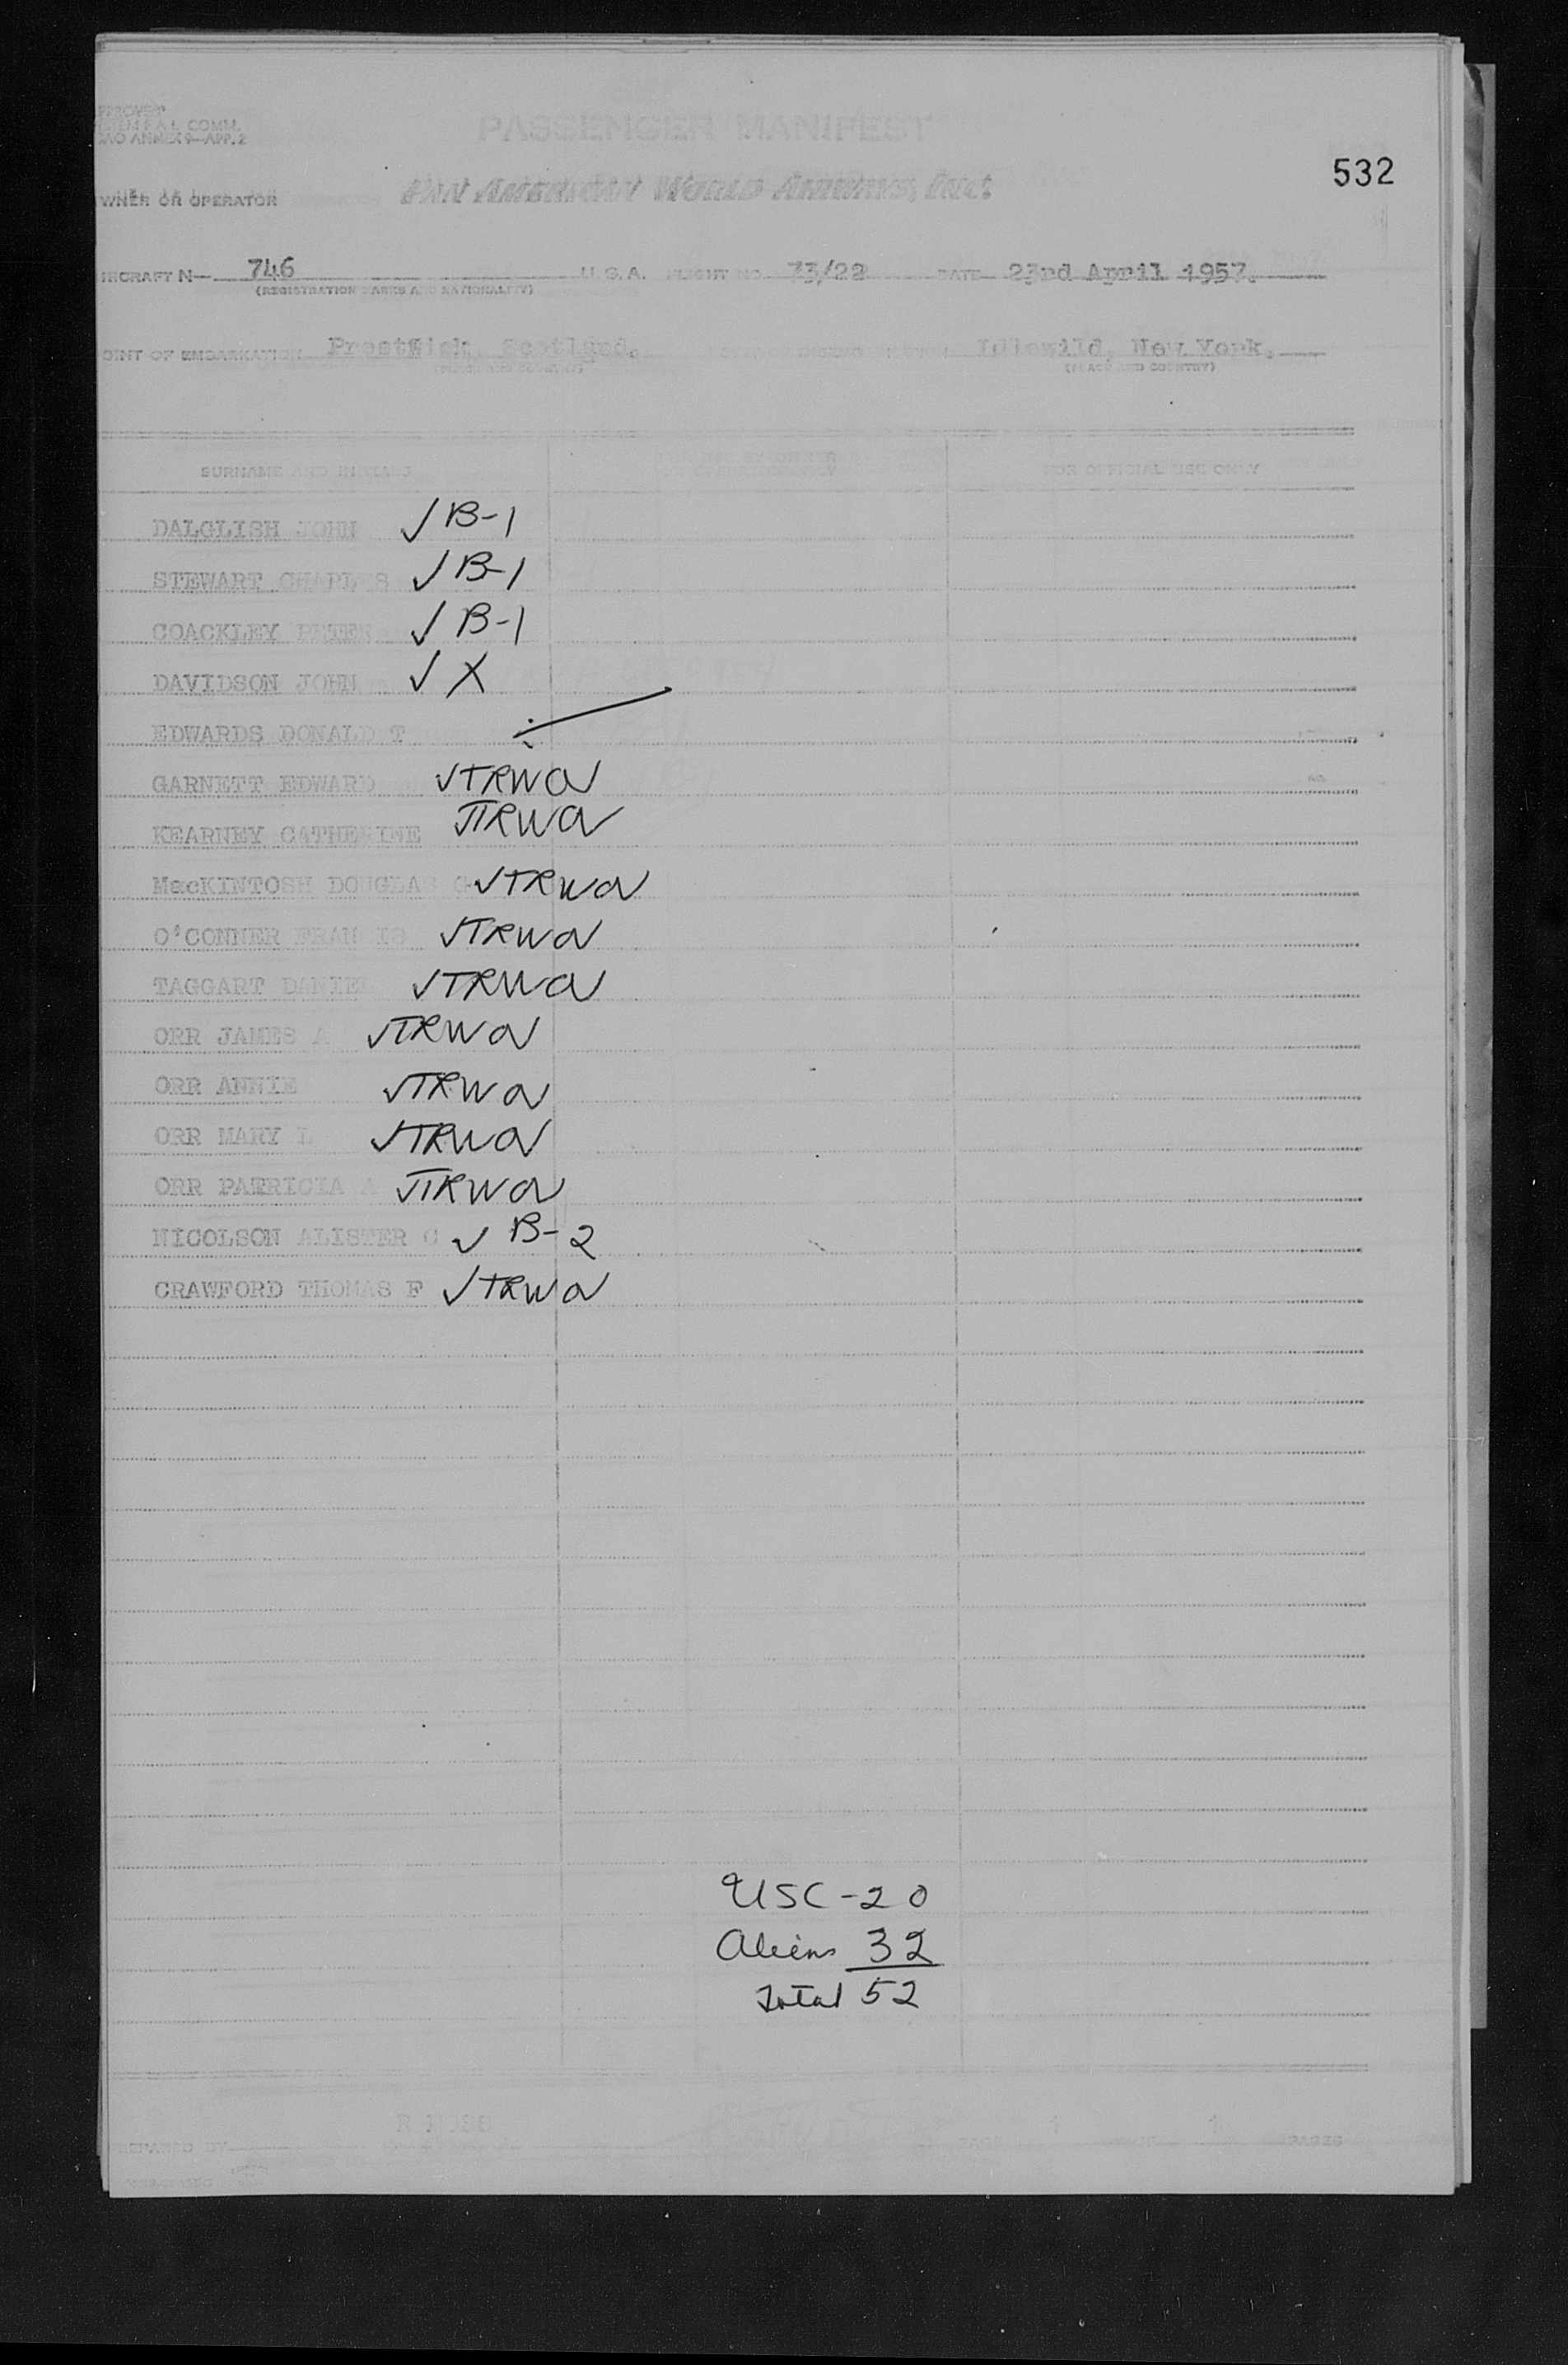 PASSENGER MANIFEST
532
WNER OR OPERATOR PAN AMERICAN WORLD AIRWAYS, INC.
IRCRAFT N— 746 U.S.A. FLIGHT NO. 73/22 DATE 23rd April 1957.
(REGISTRATION MARKS AND NATIONALITY)
OINT OF EMBARKATION Prestwick, Scotland. Idlewild, New York.
(PLACE AND COUNTRY) (PLACE AND COUNTRY)
SURNAME AND INITIALS FOR OFFICIAL USE ONLY
DALGLISH JOHN ✓ B-1
STEWART CHARLES ✓ B-1
COACKLEY PETER ✓ B-1
DAVIDSON JOHN ✓ X
EDWARDS DONALD T
GARNETT EDWARD ✓TRWOV
KEARNEY CATHERINE ✓TRWOV
MacKINTOSH DOUGLAS G ✓TRWOV
O'CONNER FRANCIS ✓TRWOV
TAGGART DANIEL ✓TRWOV
ORR JAMES A ✓TRWOV
ORR ANNIE ✓TRWOV
ORR MARY L ✓TRWOV
ORR PATRICIA A ✓TRWOV
NICOLSON ALISTER C ✓ B-2
CRAWFORD THOMAS F ✓TRWOV
USC-20
Aliens 32
Total 52
PAGES